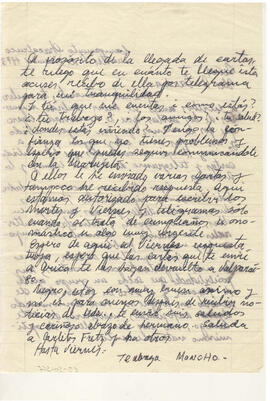 A propósito de la llegada de cartas,
te ruego que en cuánto te llegue esta
acuses recibo de ella por telegrama
para mi tranquilidad.
Y tú que me cuentas ¿cómo estás?
¿tu trabajo? ¿los amigos? ¿tu salud?
¿donde estás viviendo? Tengo la con-
fianza los que no tienes problemas y
que puedes seguir comunicándote
con la
A ellos le he enviado varias cartas y
tampoco he recibido respuesta. Aquí
estamos autorizado para escribir los
Martes y Viernes, y telegramas solo
cuando se trata de cumpleaños u ono-
mástico o algo muy urgente.
Espero de aquí al Viernes respuesta
tuya, espero que las cartas que te envié
a Arica te las hayan devuelto a Valparaí-
so.
Negro, estoy con muy buen ánimo y
no es para menos después de recibir no-
ticias de Uds., te envío mis saludos
y cariñoso abrazo de hermano. Saluda
a Carlitos Fretz y los otros.
Hasta Viernes.
Te abraza MONCHO.-